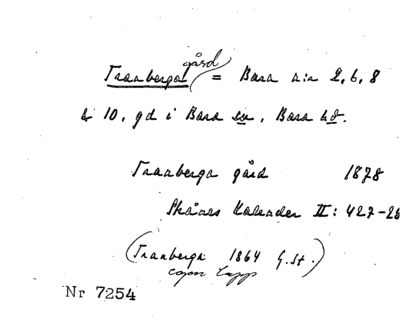 gård
Tranberga = Bara n:r 2, 6, 8
& 10, gd i Bara sn, Bara hd.
Tranberga gård 1878
Skånes Kalender II: 427-28
(Tranberga 1864 G.St.)
Nr 7254